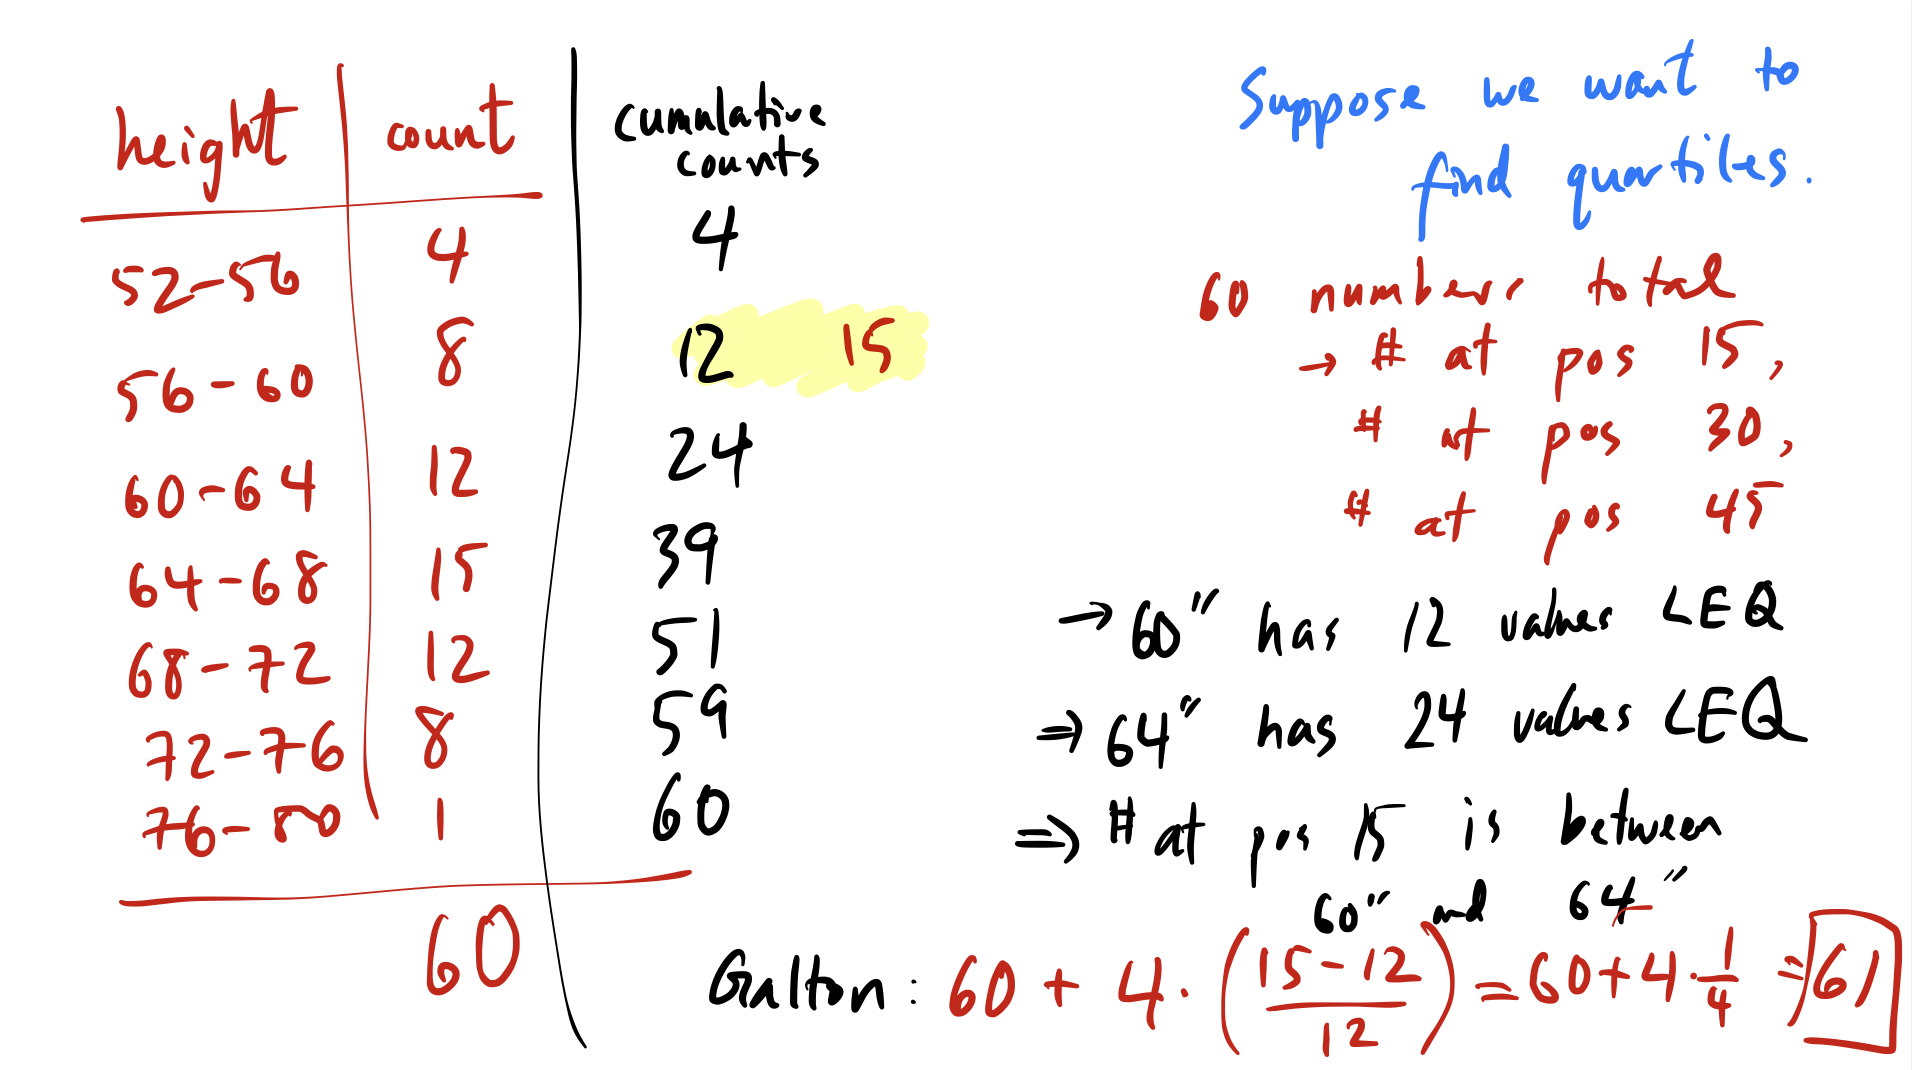 height count cumulative counts
52-56 4 4
56-60 8 12 15
60-64 12 24
64-68 15 39
68-72 12 51
72-76 8 59
76-80 1 60
60
Suppose we want to
find quartiles.
60 numbers total
→ # at pos 15,
# at pos 30,
# at pos 45
→ 60" has 12 values LEQ
⇒ 64" has 24 values LEQ
⇒ # at pos 15 is between
60" and 64"
Galton: 60 + 4 · (15-12 / 12) = 60 + 4 · 1/4 = 61